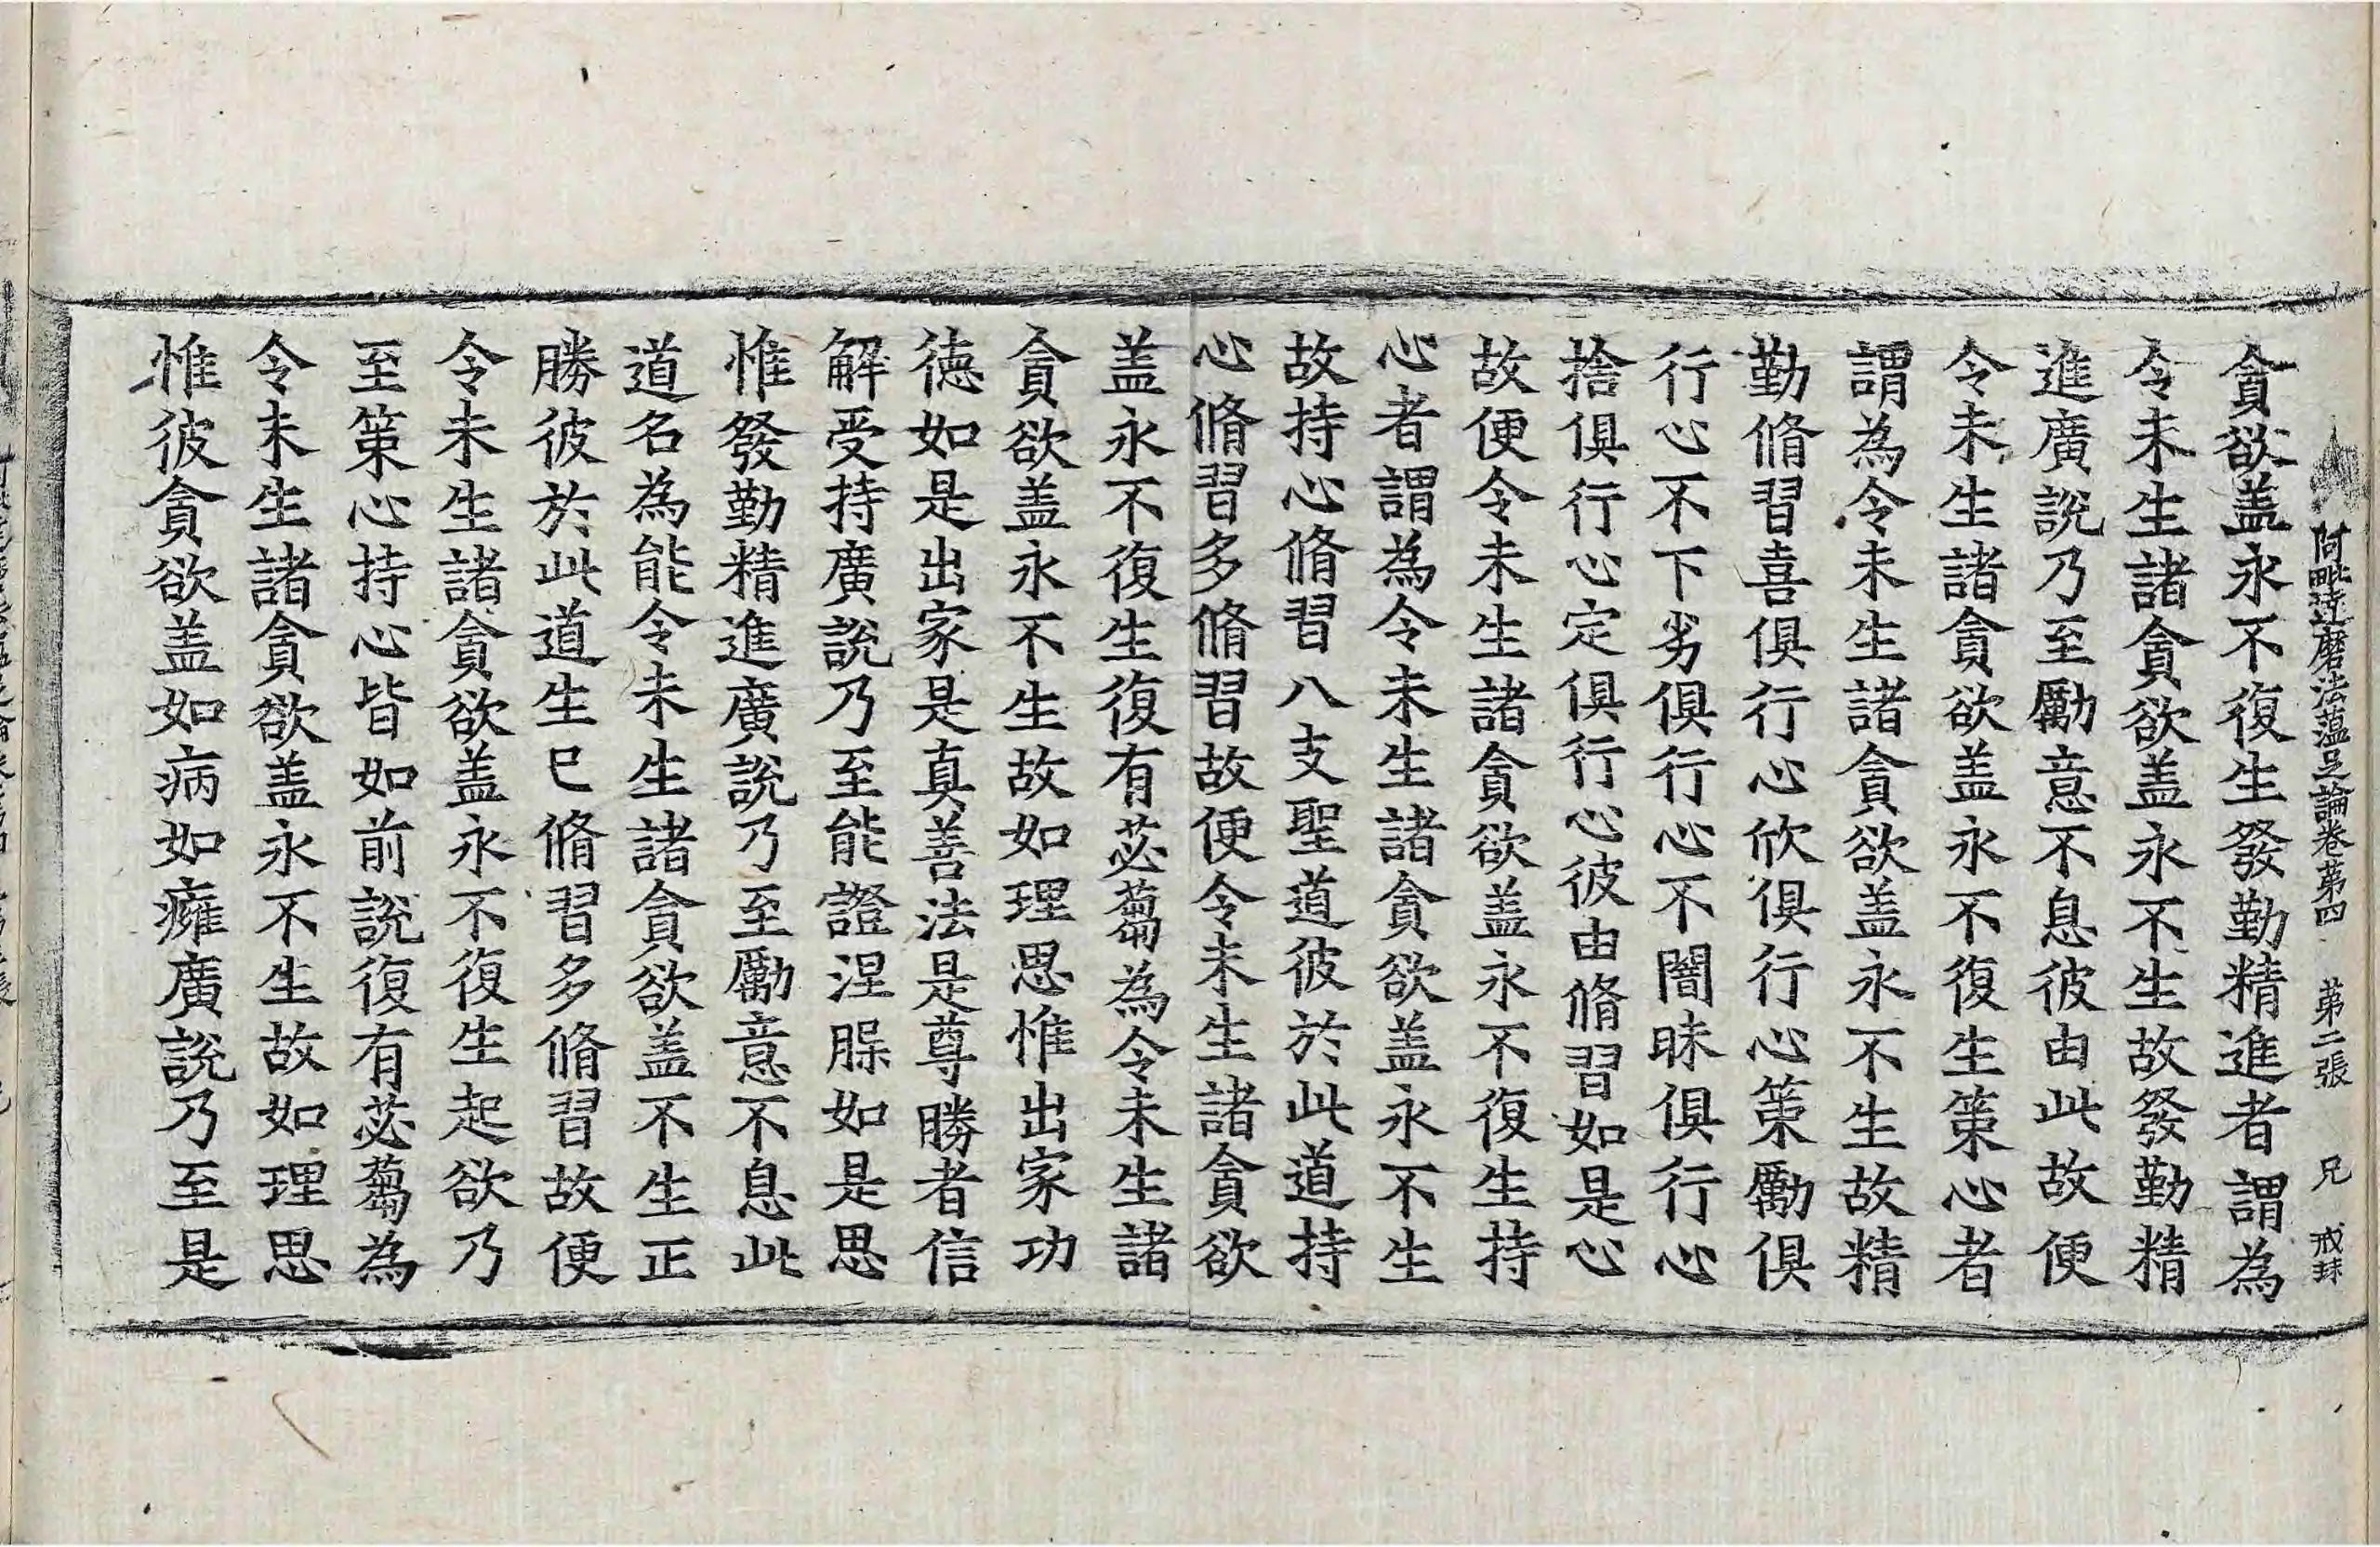 阿毗達磨法蘊足論卷第四 第二張 兄 戒珠
貪欲盖永不復生發勤精進者謂為
令未生諸貪欲盖永不生故發勤精
進廣說乃至勵意不息彼由此故便
令未生諸貪欲盖永不復生策心者
謂為令未生諸貪欲盖永不生故精
勤脩習喜俱行心欣俱行心策勵俱
行心不下劣俱行心不闇昧俱行心
捨俱行心定俱行心彼由脩習如是心
故便令未生諸貪欲盖永不復生持
心者謂為令未生諸貪欲盖永不生
故持心脩習八支聖道彼於此道持
心脩習多脩習故便令未生諸貪欲
盖永不復生復有苾蒭為令未生諸
貪欲盖永不生故如理思惟出家功
德如是出家是真善法是尊勝者信
解受持廣說乃至能證涅槃如是思
惟發勤精進廣說乃至勵意不息此
道名為能令未生諸貪欲盖不生正
勝彼於此道生已脩習多脩習故便
令未生諸貪欲盖永不復生起欲乃
至策心持心皆如前說復有苾蒭為
令未生諸貪欲盖永不生故如理思
惟彼貪欲盖如病如癰廣說乃至是